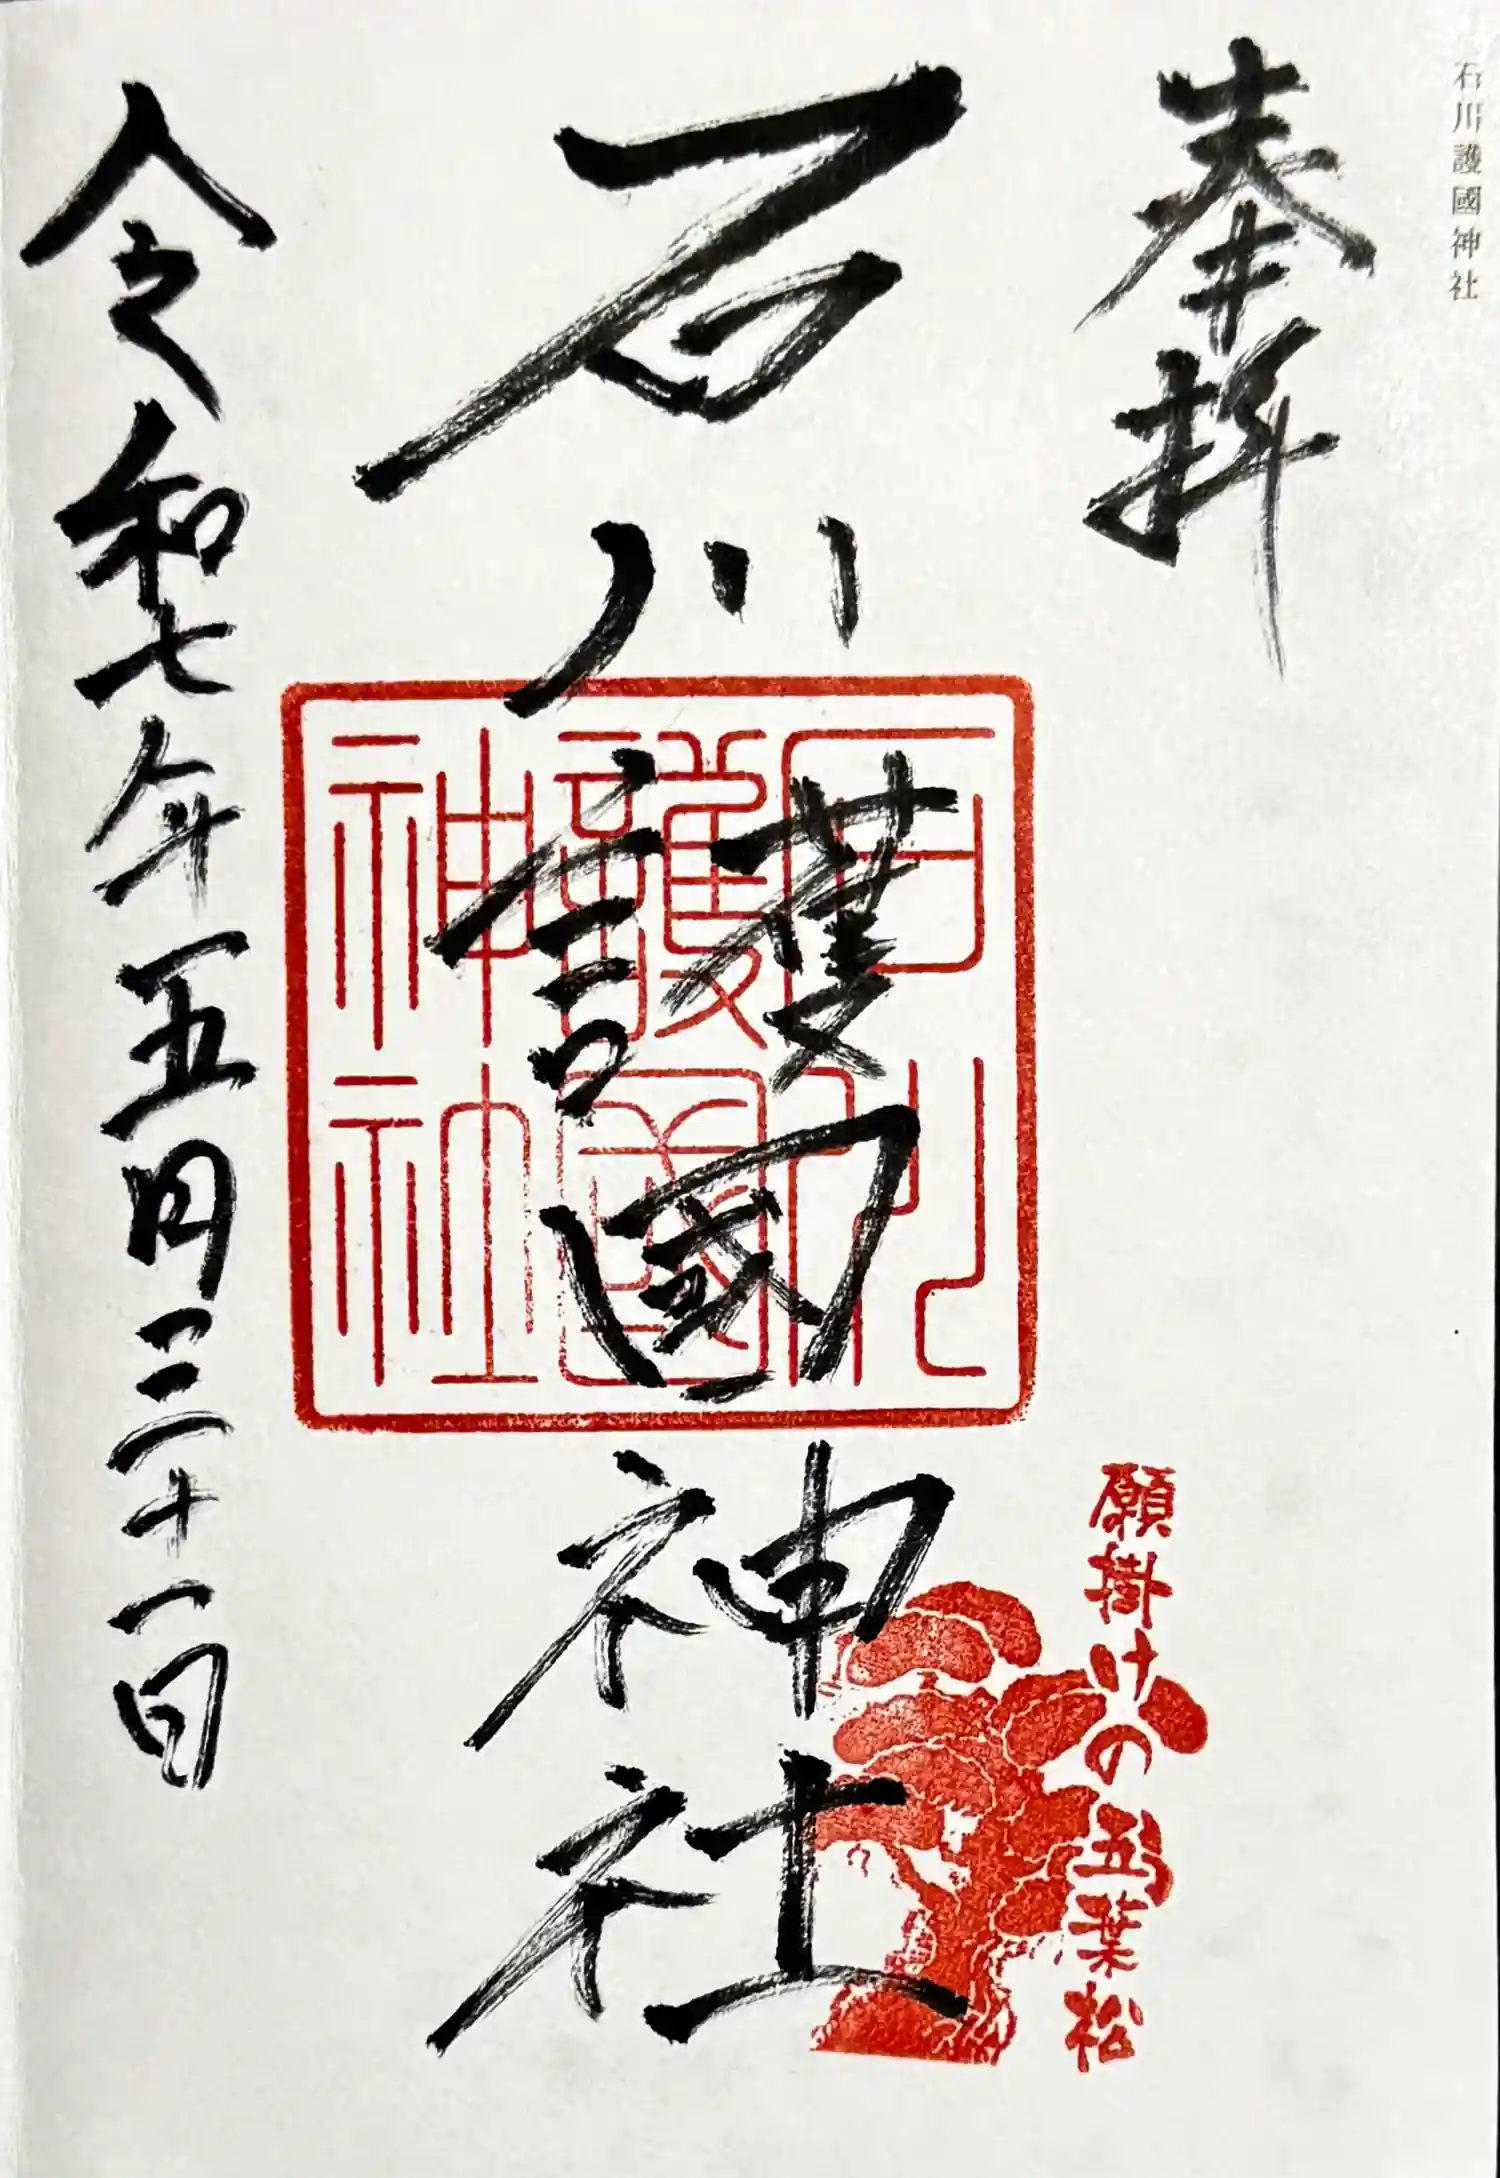 石川護國神社
奉拝
石川護國神社
石川
護國
神社
願掛けの五葉松
令和七年五月三十一日